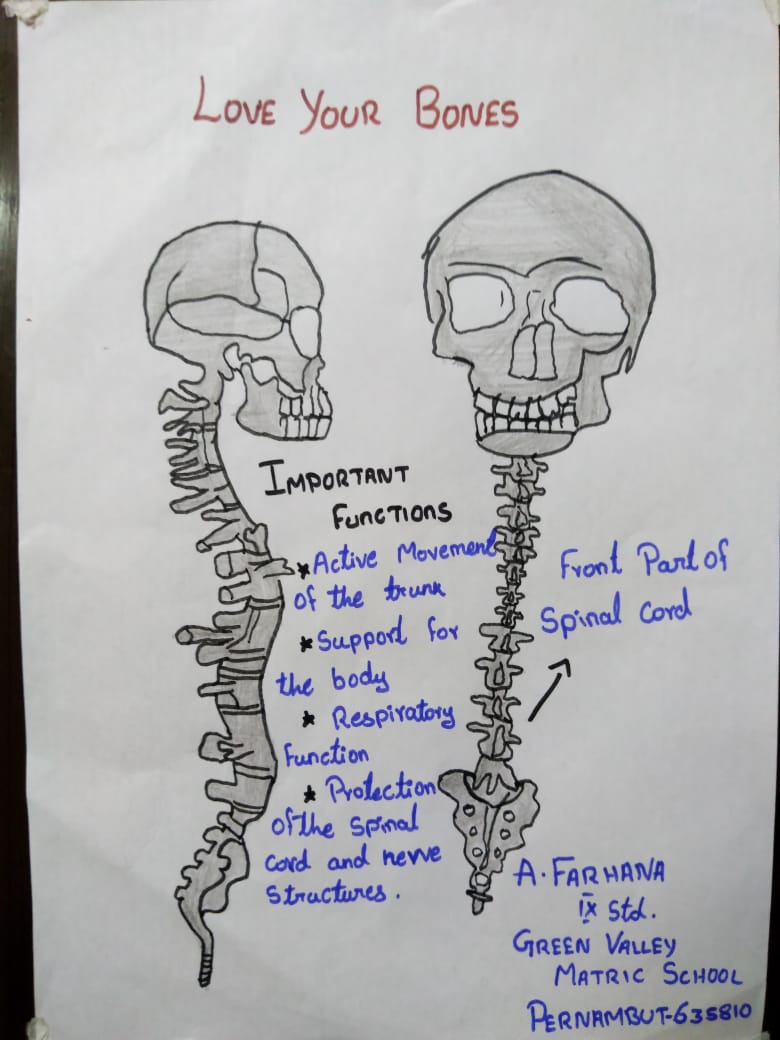 LOVE YOUR BONES
IMPORTANT
FUNCTIONS
* Active Movement
of the trunk
* Support for
the body
* Respiratory
function
* Protection
of the spinal
cord and nerve
structures.
Front Part of
Spinal cord
A. FARHANA
IX Std.
GREEN VALLEY
MATRIC SCHOOL
PERNAMBUT-635810